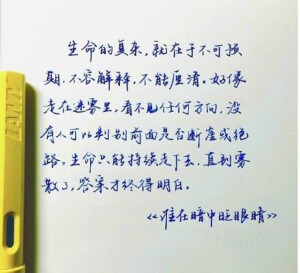 生命的复杂,就在于不可预
期,不容解释,不能厘清。好像
走在迷雾里,看不见任何方向,没
有人可以判别前面是否断崖或绝
路。生命只能持续走下去,直到雾
散了,答案才终得明白。
《谁在暗中眨眼睛》
LAMY